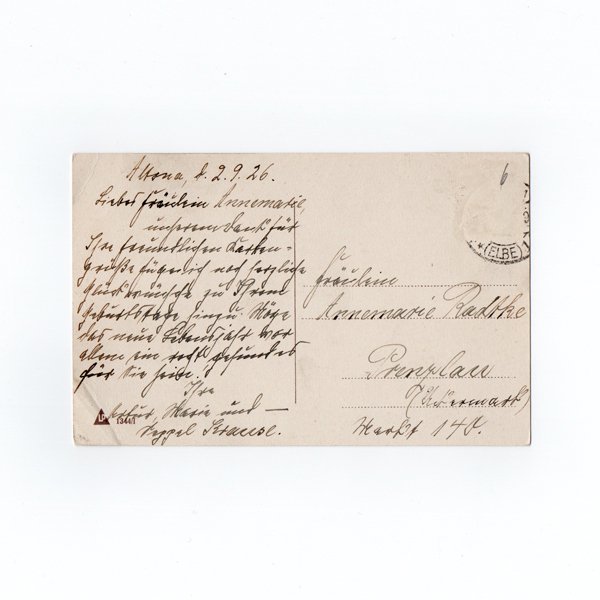 Altona, d. 2.9.26.
Liebes Fräulein Annemarie,
unserem Dank für
Ihre freundlichen Karten-
grüße fügen ich noch herzliche
Glückwünsche zu Ihrem
Geburtstage hinzu. Möge
das neue Lebensjahr vor
allem ein recht gesundes
für Sie sein.
Ihre
Artur, Marie und
Krause.
1344/1
6
(ELBE)
Fräulein
Annemarie Radtke
Prenzlau
(Uckermark)
Markt 140.